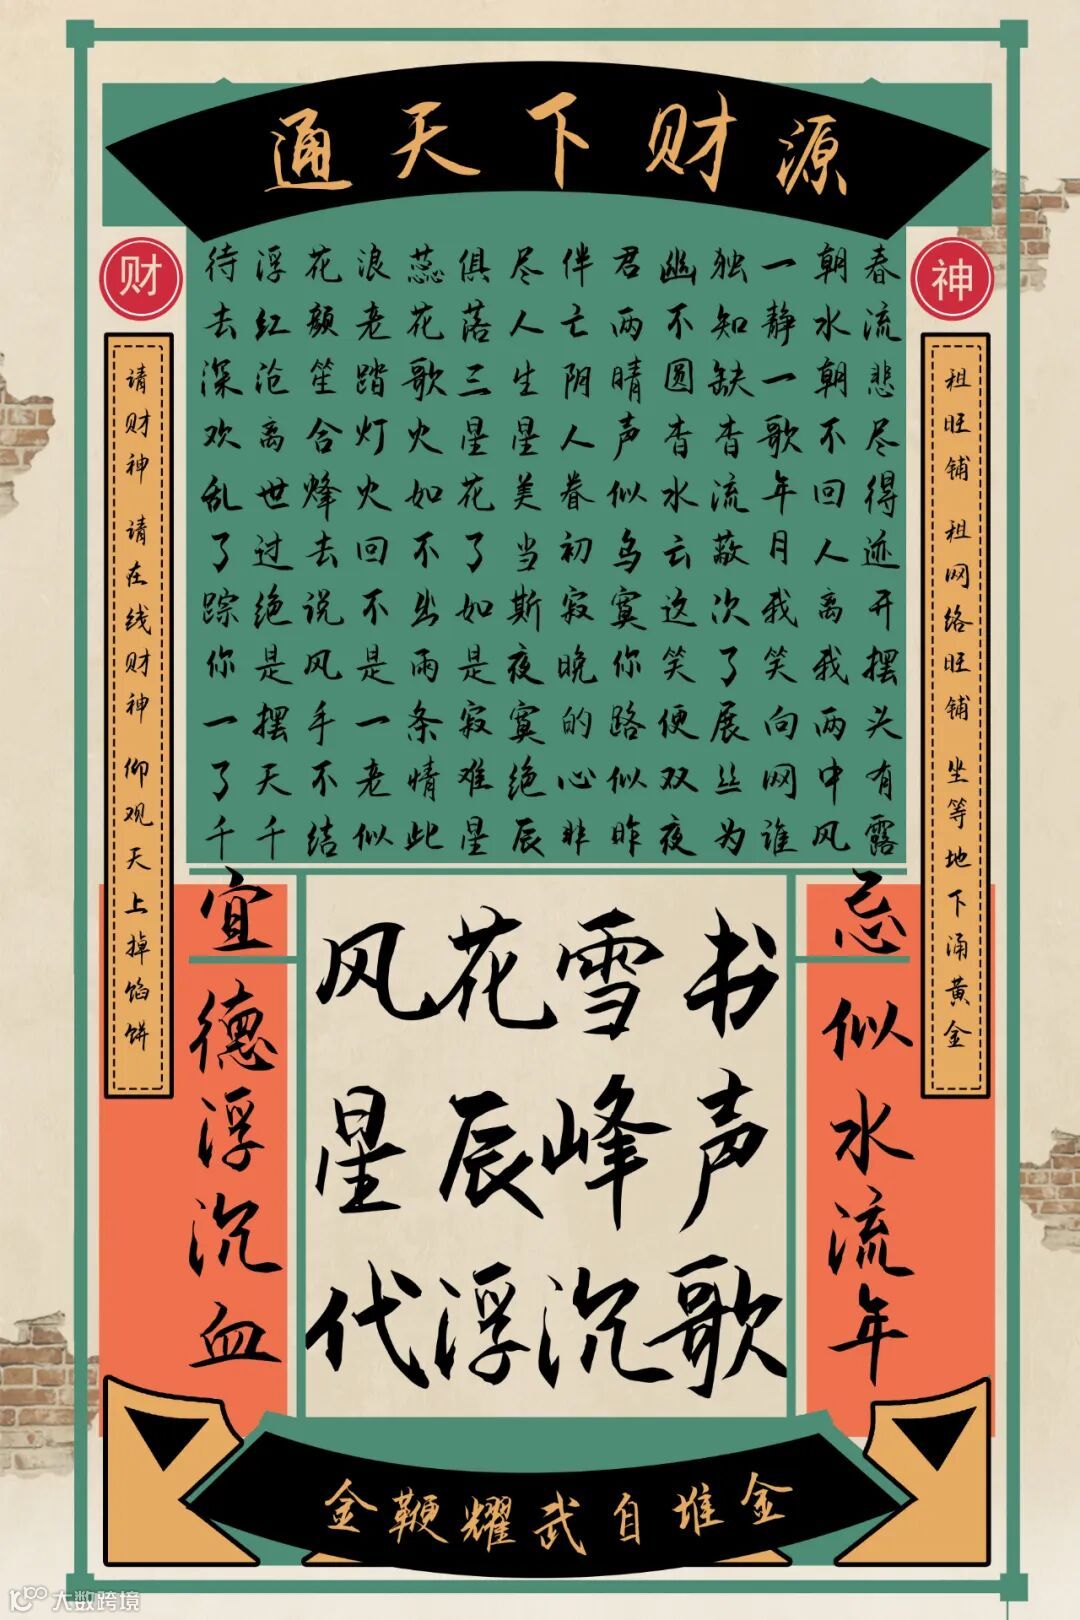 通天下财源
财
神
待浮花浪蕊俱尽伴君幽独一朝春
去红颜老花落人亡两不知静水流
深沧笙踏歌三生阴晴圆缺一朝悲
欢离合灯火星星人声杳杳歌不尽
乱世烽火如花美眷似水流年回得
了过去回不了当初乌云蔽月人迹
踪绝说不出如斯寂寞这次我离开
你是风是雨是夜晚你笑了笑我摆
一摆手一条寂寞的路便展向两头
了天不老情难绝心似双丝网中有
千千结似此星辰非昨夜为谁风露
请财神 请在线财神 仰观天上掉馅饼
租旺铺 租网络旺铺 坐等地下涌黄金
宜
德浮沉血
风花雪书
星辰峰声
代浮沉歌
忌
似水流年
金鞭耀武自堆金
大数跨境